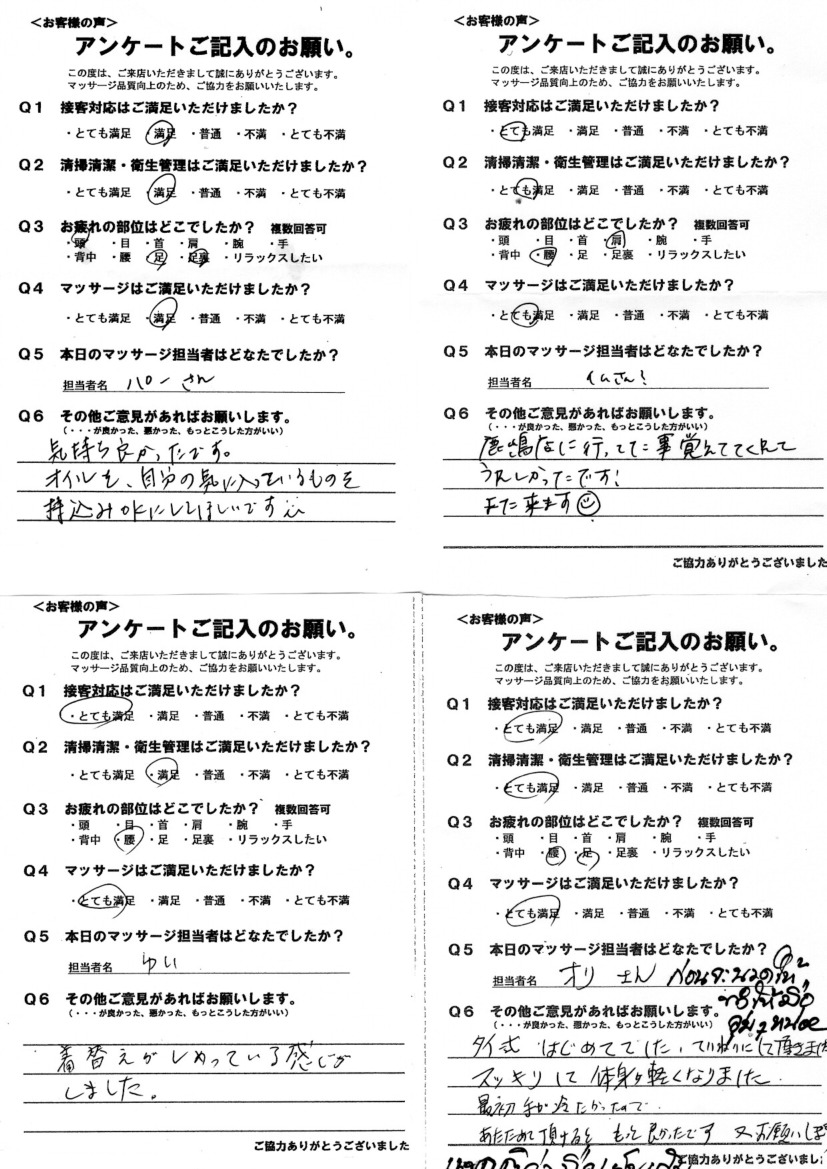 <お客様の声>
アンケートご記入のお願い。
この度は、ご来店いただきまして誠にありがとうございます。
マッサージ品質向上のため、ご協力をお願いいたします。
Q1 接客対応はご満足いただけましたか?
・とても満足 ・満足 ・普通 ・不満 ・とても不満
Q2 清掃清潔・衛生管理はご満足いただけましたか?
・とても満足 ・満足 ・普通 ・不満 ・とても不満
Q3 お疲れの部位はどこでしたか? 複数回答可
・頭 ・目 ・首 ・肩 ・腕 ・手
・背中 ・腰 ・足 ・足裏 ・リラックスしたい
Q4 マッサージはご満足いただけましたか?
・とても満足 ・満足 ・普通 ・不満 ・とても不満
Q5 本日のマッサージ担当者はどなたでしたか?
担当者名 パーさん
Q6 その他ご意見があればお願いします。
(・・・が良かった、悪かった、もっとこうした方がいい)
気持ち良かったです。
オイルを、自分の気に入っているものを
持込みOKにしてほしいです
<お客様の声>
アンケートご記入のお願い。
この度は、ご来店いただきまして誠にありがとうございます。
マッサージ品質向上のため、ご協力をお願いいたします。
Q1 接客対応はご満足いただけましたか?
・とても満足 ・満足 ・普通 ・不満 ・とても不満
Q2 清掃清潔・衛生管理はご満足いただけましたか?
・とても満足 ・満足 ・普通 ・不満 ・とても不満
Q3 お疲れの部位はどこでしたか? 複数回答可
・頭 ・目 ・首 ・肩 ・腕 ・手
・背中 ・腰 ・足 ・足裏 ・リラックスしたい
Q4 マッサージはご満足いただけましたか?
・とても満足 ・満足 ・普通 ・不満 ・とても不満
Q5 本日のマッサージ担当者はどなたでしたか?
担当者名 イムさん!
Q6 その他ご意見があればお願いします。
(・・・が良かった、悪かった、もっとこうした方がいい)
鹿嶋店に行ってた事覚えててくれて
うれしかったです!
また来ます
ご協力ありがとうございました
<お客様の声>
アンケートご記入のお願い。
この度は、ご来店いただきまして誠にありがとうございます。
マッサージ品質向上のため、ご協力をお願いいたします。
Q1 接客対応はご満足いただけましたか?
・とても満足 ・満足 ・普通 ・不満 ・とても不満
Q2 清掃清潔・衛生管理はご満足いただけましたか?
・とても満足 ・満足 ・普通 ・不満 ・とても不満
Q3 お疲れの部位はどこでしたか? 複数回答可
・頭 ・目 ・首 ・肩 ・腕 ・手
・背中 ・腰 ・足 ・足裏 ・リラックスしたい
Q4 マッサージはご満足いただけましたか?
・とても満足 ・満足 ・普通 ・不満 ・とても不満
Q5 本日のマッサージ担当者はどなたでしたか?
担当者名 ゆい
Q6 その他ご意見があればお願いします。
(・・・が良かった、悪かった、もっとこうした方がいい)
着替えがしめっている感じが
しました。
ご協力ありがとうございました
<お客様の声>
アンケートご記入のお願い。
この度は、ご来店いただきまして誠にありがとうございます。
マッサージ品質向上のため、ご協力をお願いいたします。
Q1 接客対応はご満足いただけましたか?
・とても満足 ・満足 ・普通 ・不満 ・とても不満
Q2 清掃清潔・衛生管理はご満足いただけましたか?
・とても満足 ・満足 ・普通 ・不満 ・とても不満
Q3 お疲れの部位はどこでしたか? 複数回答可
・頭 ・目 ・首 ・肩 ・腕 ・手
・背中 ・腰 ・足 ・足裏 ・リラックスしたい
Q4 マッサージはご満足いただけましたか?
・とても満足 ・満足 ・普通 ・不満 ・とても不満
Q5 本日のマッサージ担当者はどなたでしたか?
担当者名 オリ さん
Q6 その他ご意見があればお願いします。
(・・・が良かった、悪かった、もっとこうした方がいい)
タイ式 はじめてでした、ていねいにして頂きまた
スッキリして 体身が軽くなりました
最初 手が冷たかったので
あたためて頂けると もっと良かったです 又お願いしま
ご協力ありがとうございまし